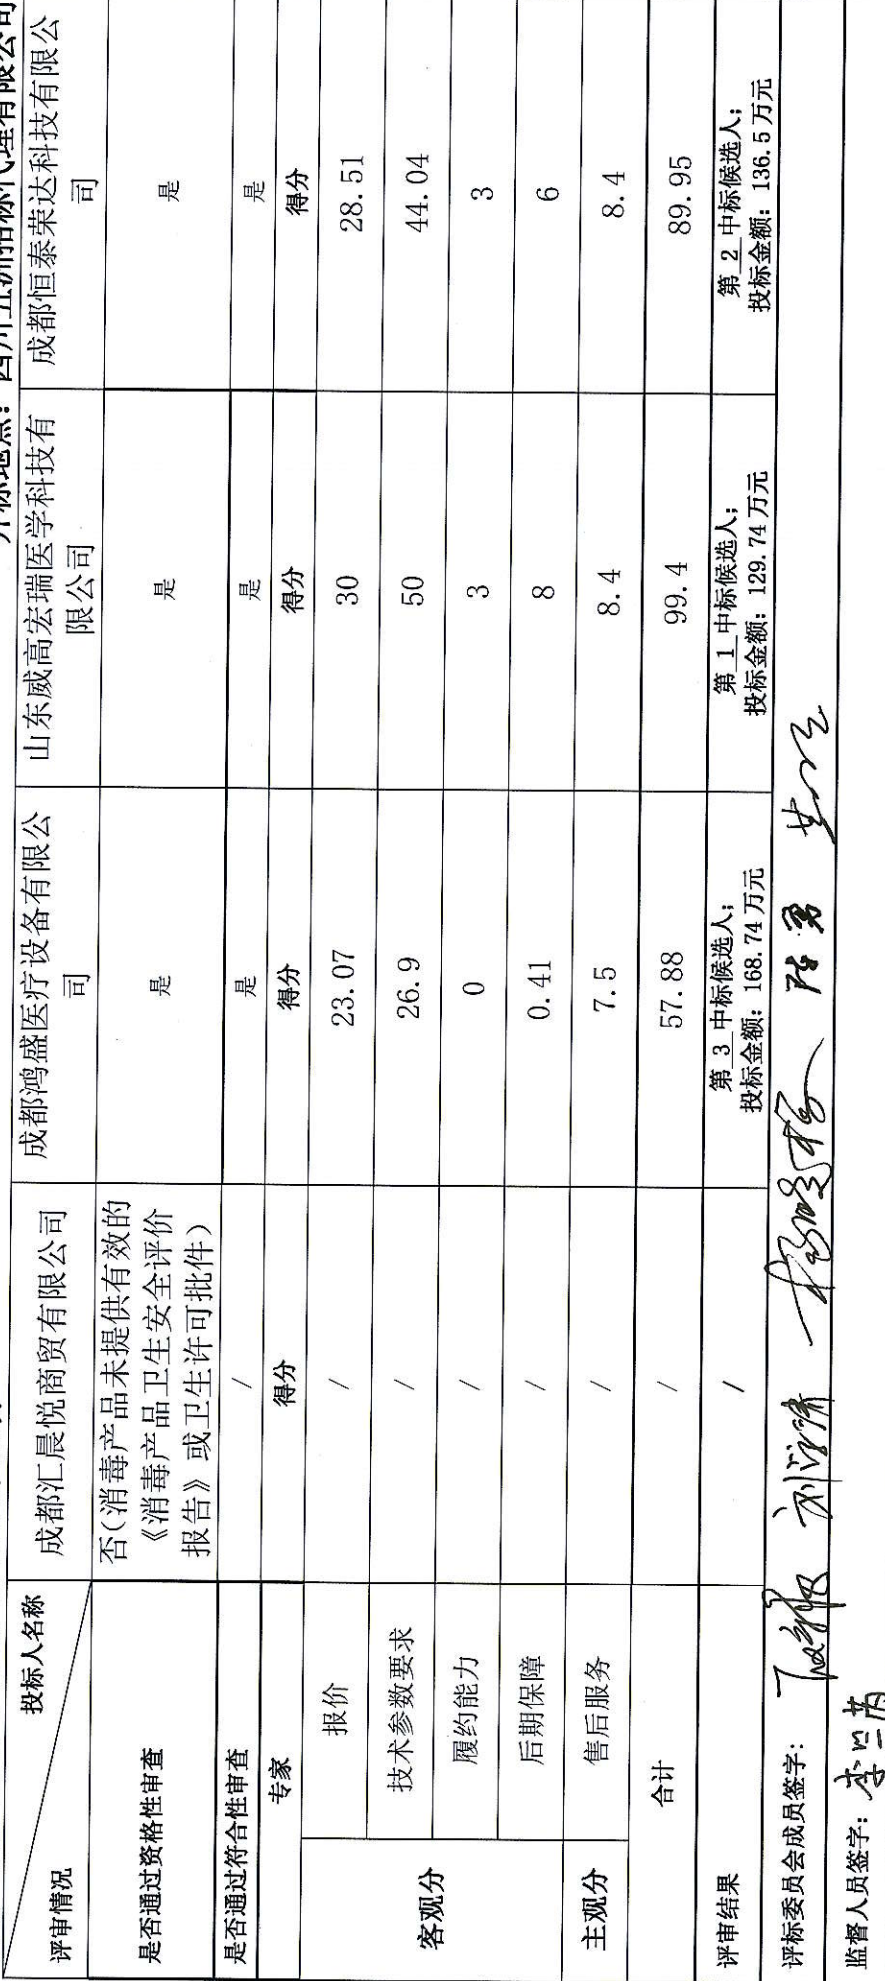 开标地点：四川五洲招标代理有限公司
投标人名称
评审情况
成都汇晨悦商贸有限公司
成都鸿盛医疗设备有限公
司
山东威高宏瑞医学科技有
限公司
成都恒泰荣达科技有限公
司
是否通过资格性审查
否(消毒产品未提供有效的
《消毒产品卫生安全评价
报告》或卫生许可批件)
是
是
是
是否通过符合性审查
/
是
是
是
专家
得分
得分
得分
得分
客观分
报价
/
23.07
30
28.51
技术参数要求
/
26.9
50
44.04
履约能力
/
0
3
3
后期保障
/
0.41
8
6
主观分
售后服务
/
7.5
8.4
8.4
合计
/
57.88
99.4
89.95
评审结果
/
第 3 中标候选人；
投标金额：168.74万元
第 1 中标候选人；
投标金额：129.74万元
第 2 中标候选人；
投标金额：136.5万元
评标委员会成员签字：
监督人员签字：